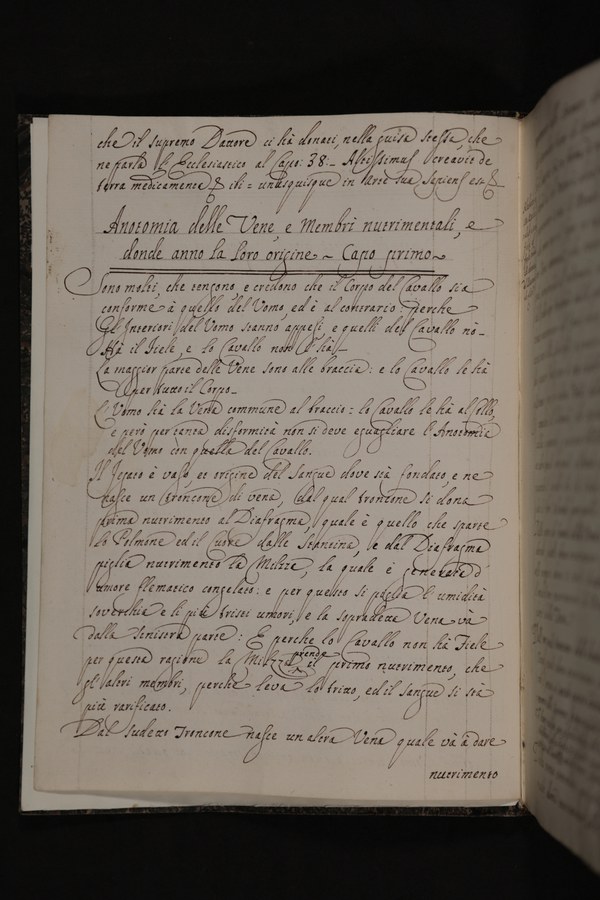 che il supremo Dattore ci hà donati, nella guisa stessa, che
ne parla l'Ecclesiastico al Capo: 38:- Altissimus creavit de
terra medicamenta & iti = unusquisque in Arte sua sapiens est &
Anotomia delle Vene, e Membri nutrimentali, e
donde anno la loro origine ~ Capo primo ~
Sono molti, che tengono, e credono che il Corpo del Cavallo sia
conforme à quello del Uomo, ed è al contrario: perche
Gl'Interiori del Uomo stanno appesi, e quelli del Cavallo nò-
Hà il Fiele, e lo Cavallo non l'hà-
La maggior parte delle Vene sono alle braccia: e lo Cavallo le hà
per tutto il Corpo-
L'Uomo hà la Vena commune al braccio: lo Cavallo le hà al Collo,
e però per tanta disformità non si deve eguagliare l'Anotomia
del Uomo con quella del Cavallo.
Il Fegato è vaso, et origine del sangue dove stà fondato, e ne
nasce un troncone di vena, dal qual troncone si dona
prima nutrimento al Diafragma, quale è quello che sparte
lo Polmone ed il Cuore dalle Stantina, e dal Diafragma
piglia nutrimento la Milza, la quale è generata d'
umore flematico congelato: e per questo si piglia l'umidità
soverchia e li più tristi umori, e la sopradetta Vena và
dalla sinistra parte: E perche lo Cavallo non hà Fiele
per questa ragione la Milza prende il primo nutrimento, che
gl'altri membri, perche leva lo tristo, ed il sangue si stà
più rarificato.
Dal sudetto Troncone nasce un altra Vena quale và à dare
nutrimento